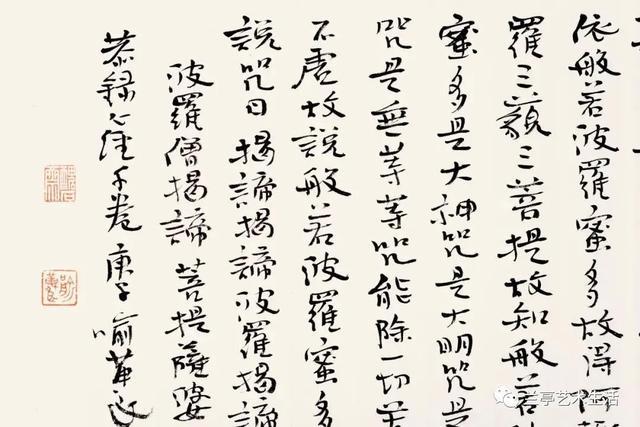 依般若波羅蜜多故得阿耨
羅三藐三菩提故知般若
蜜多是大神咒是大明咒是
咒是無等等咒能除一切苦
不虛故說般若波羅蜜多
說咒曰 揭諦揭諦波羅揭諦
波羅僧揭諦 菩提薩婆
恭録心經千卷 庚子 喻革良
兰亭艺术生活